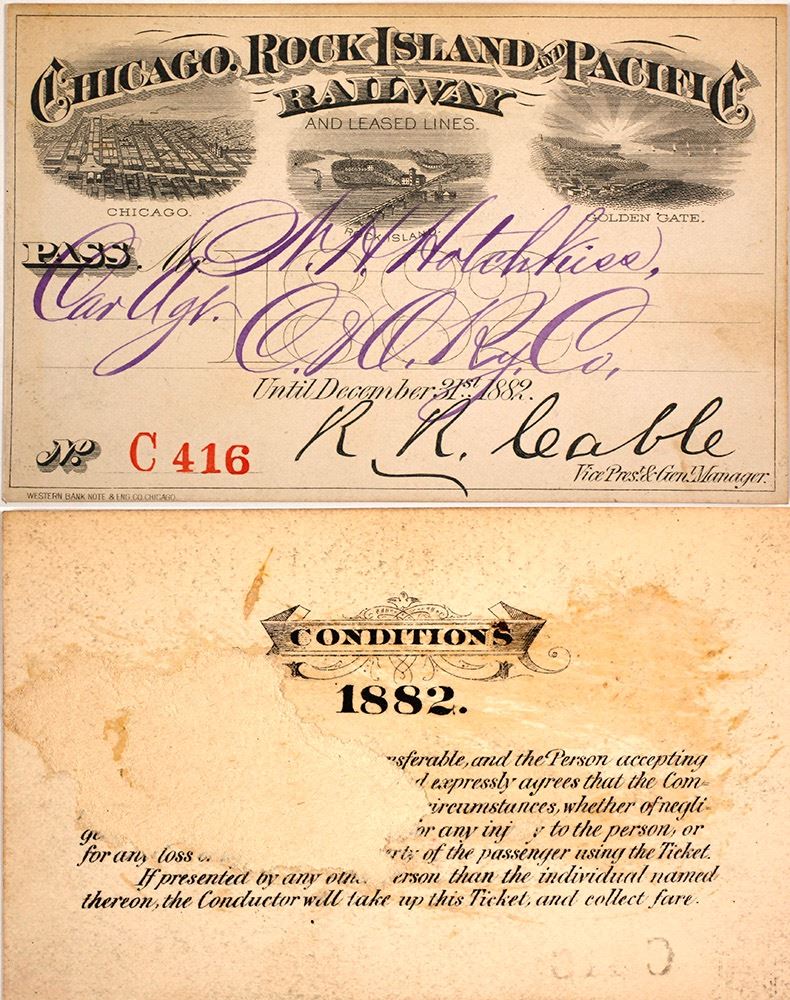 CHICAGO, ROCK ISLAND AND PACIFIC
RAILWAY
AND LEASED LINES.
CHICAGO.
ROCK ISLAND.
GOLDEN GATE.
PASS Mr. W. H. Hotchkiss,
1882
Car Agt. C. & O. Ry. Co.
Until December 31st 1882.
No. C 416
R. R. Cable
Vice Prest. & Genl. Manager.
WESTERN BANK NOTE & ENG. CO. CHICAGO.
CONDITIONS
1882.
nsferable, and the Person accepting
d expressly agrees that the Com-
circumstances, whether of negli-
or any inj y to the person, or
for any loss erty of the passenger using the Ticket.
If presented by any erson than the individual named
thereon, the Conductor will take up this Ticket, and collect fare.